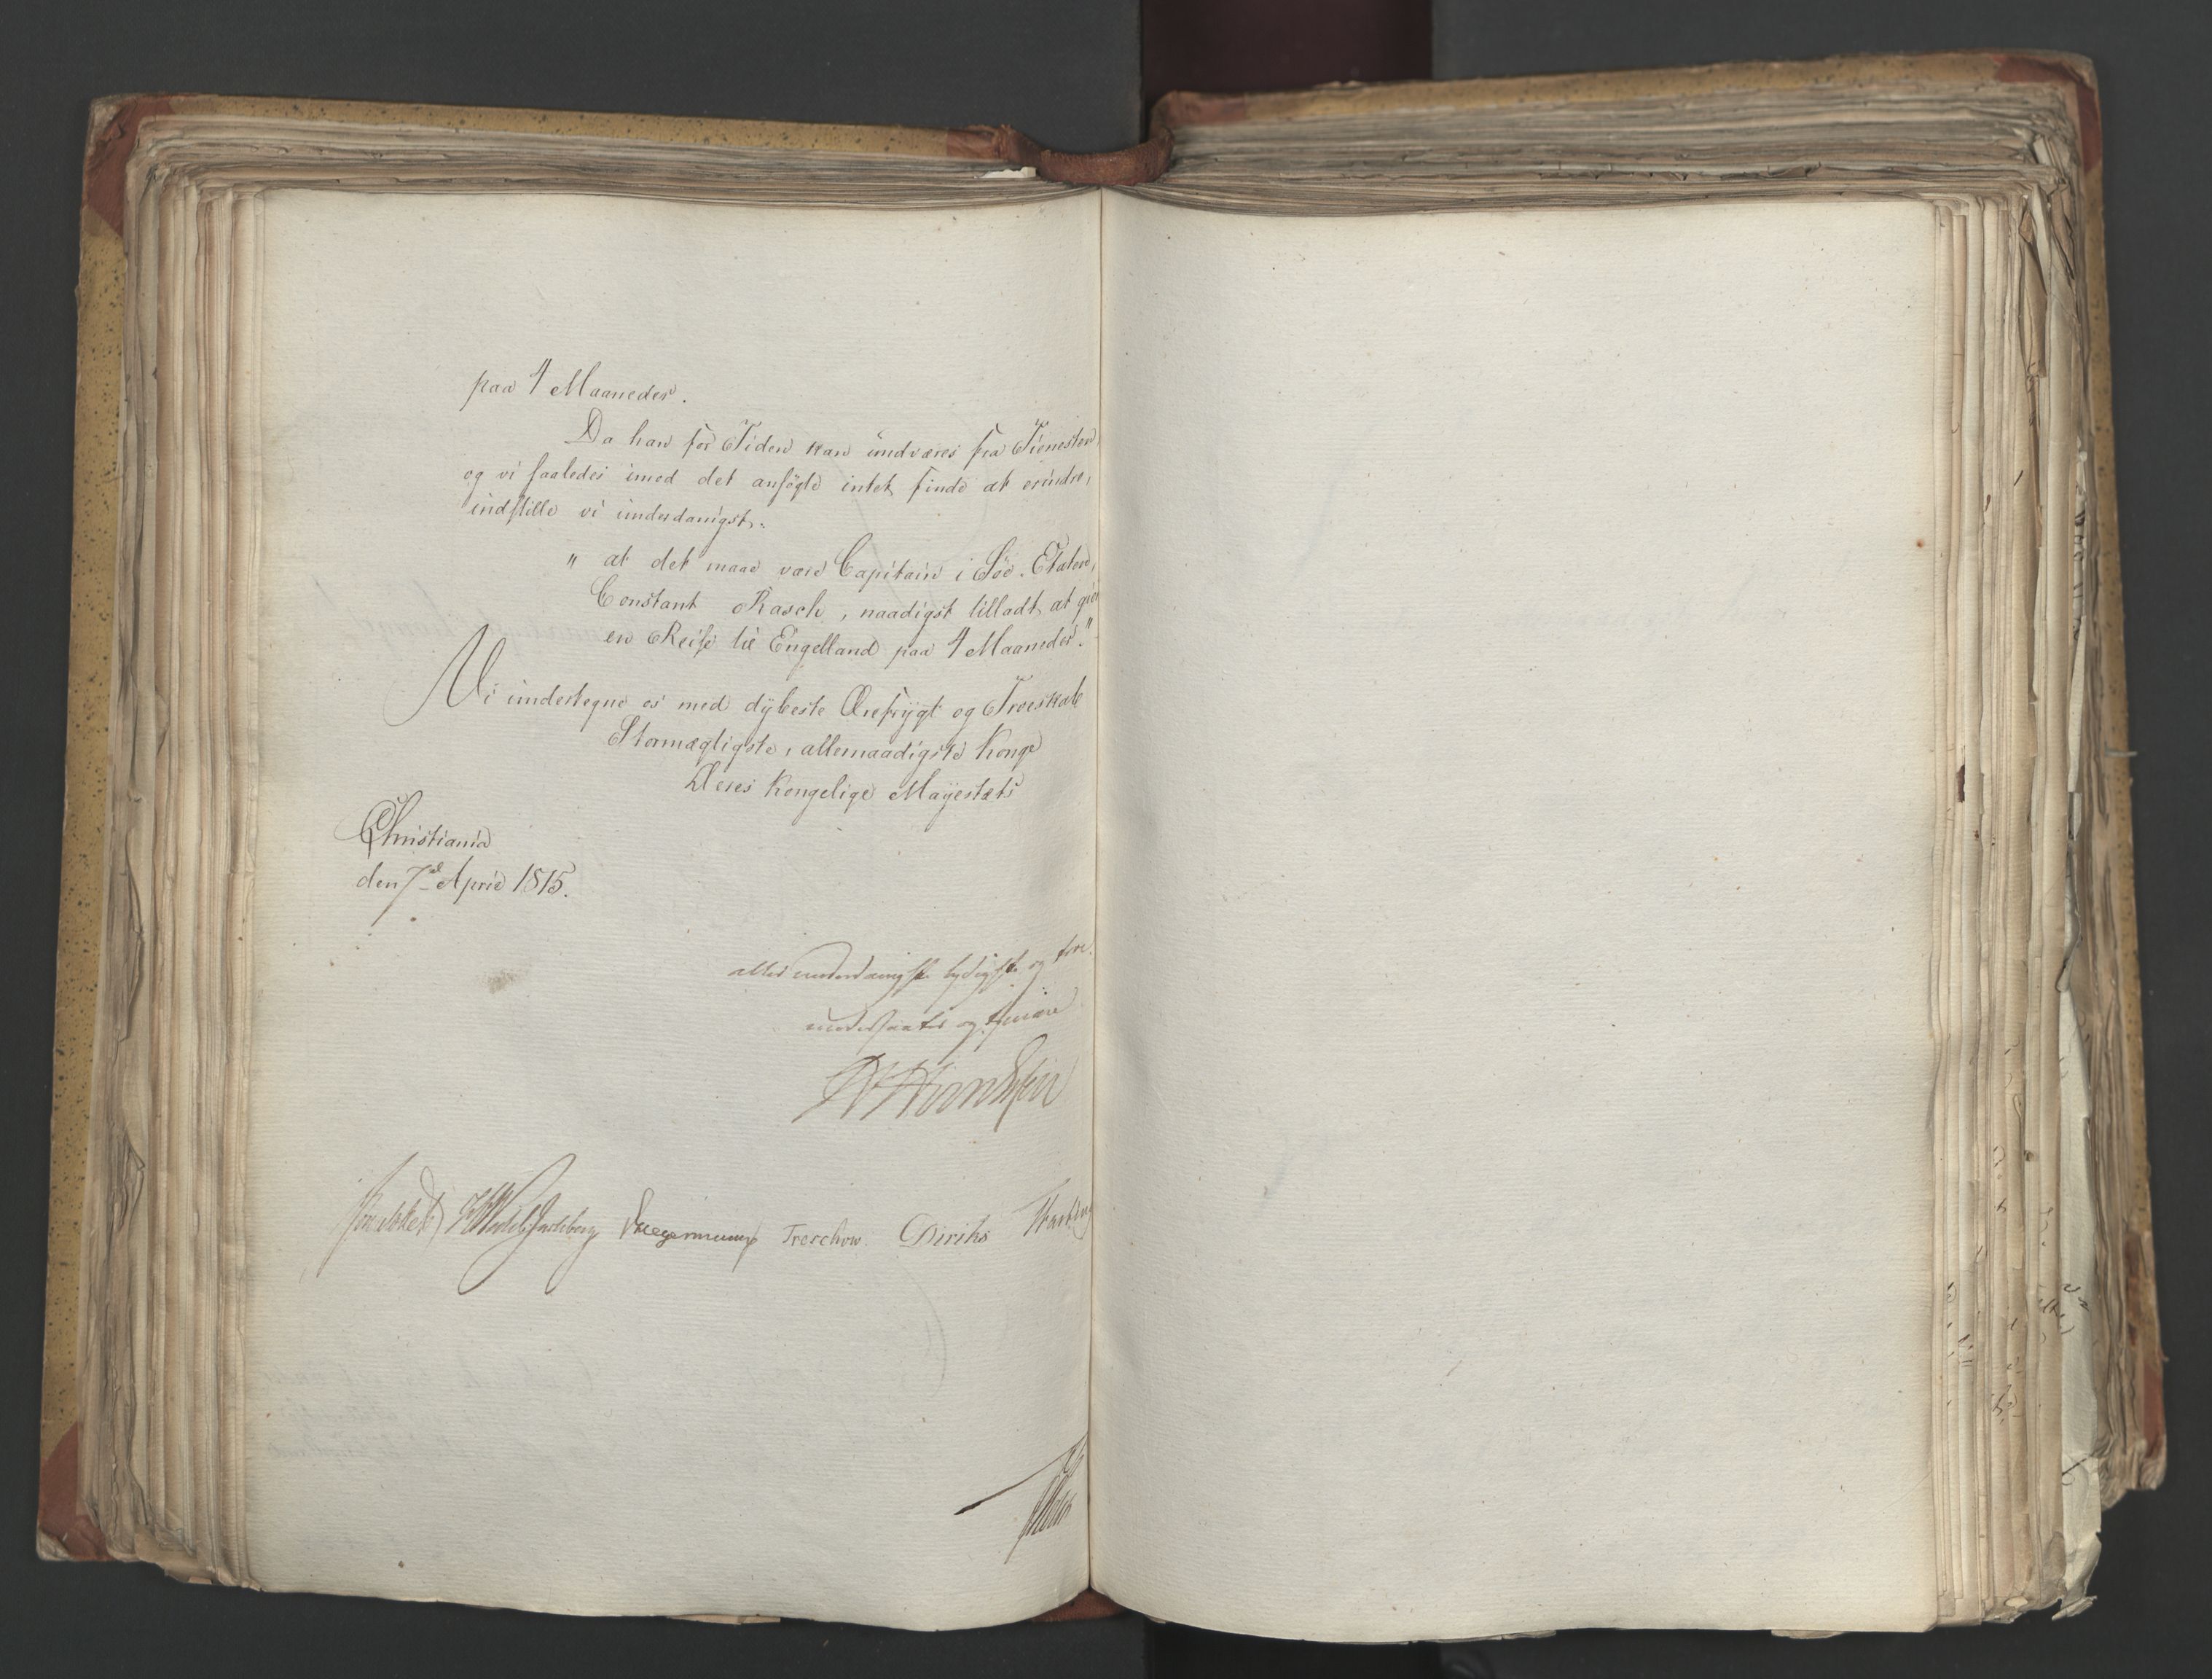 paa 4 Maaneder.
Da han for Tiden kan undværes fra Tienesten,
og vi saaledes imod det ansøgte intet finde at erindre,
indstille vi underdanigst:
" at det maae være Capitain i Søe-Etaten,
Constant Rasch, naadigst tilladt at giøre
en Reise til Engelland paa 4 Maaneder."
Vi undertegne os med dybeste Ærefrygt og Troeskab
Stormægtigste, allernaadigste Konge
Deres Kongelige Mayestæts
Christiania
den 7de April 1815.
allerunderdanigste lydigste og troe
undersaatter og tjenere
Sommerhielm Wedel Jarlsberg Krogh Treschow. Diriks